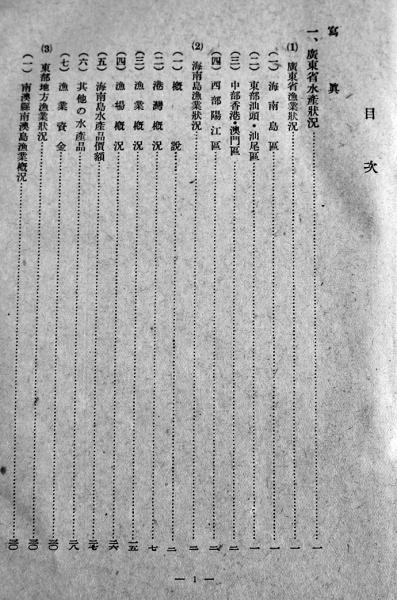 目次
寫眞
一、廣東省水產狀況……一
(1) 廣東省漁業狀況……一
(一) 海南島區……一
(二) 東部汕頭・汕尾區……一
(三) 中部香港・澳門區……二
(四) 西部陽江區……二
(2) 海南島漁業狀況……二
(一) 概說……二
(二) 港灣概況……七
(三) 漁業概況……一五
(四) 漁場概況……二六
(五) 海南島水產品價額……二七
(六) 其他の水產品……二八
(七) 漁業資金……三〇
(3) 東部地方漁業狀況……三〇
(一) 南澳縣南澳島漁業概況……三〇
— 1 —